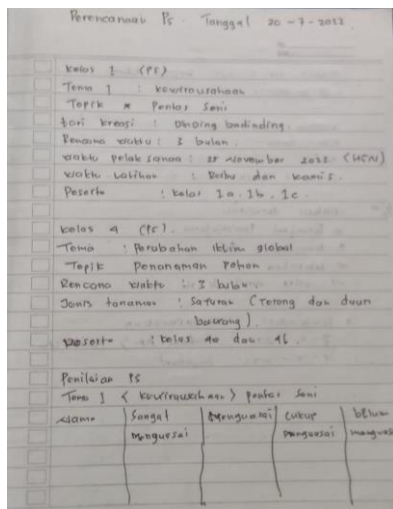 Perencanaan Ps. Tanggal 20-7-2022
Kelas 1 (PS)
Tema 1 : kewirausahaan
Topik * Pentas Seni
tari kreasi : badinding
Rencana waktu : 3 bulan
waktu pelaksanaan : 25 November 2022 (HGN)
waktu Latihan : Rabu dan kamis
Peserta : Kelas 1a. 1b. 1c
kelas 4 (PS)
Tema : Perubahan Iklim global
Topik Penanaman Pohon
Rencana waktu : 3 bulan
Jenis tanaman : Sayuran (Terong dan daun
bawang)
peserta : kelas 4a dan 4b
Penilaian PS
Tema 1 < kewirausahaan > pentas seni
Nama Sangat Menguasai cukup belum
menguasai menguasai menguasai